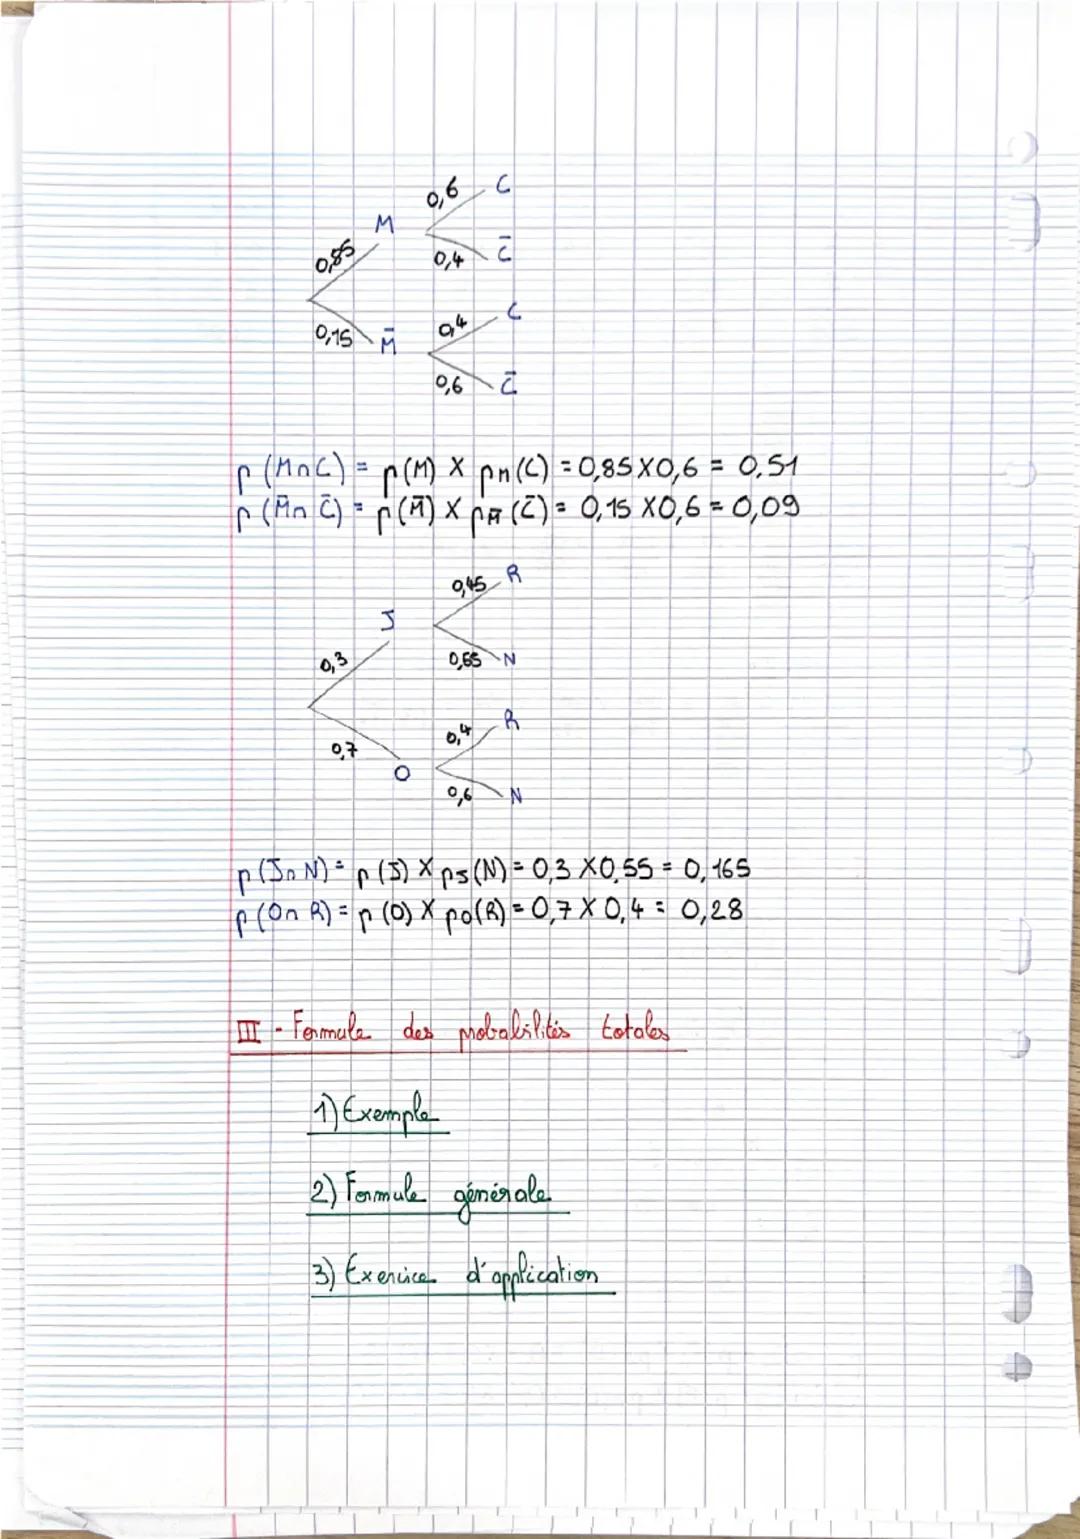 0,6 C
M
0,85
0,4 C̄
0,4 C
0,15 M̄
0,6 C̄
p (M∩C) = p(M) X pM(C) = 0,85X0,6 = 0,51
p (M̄∩ C̄) = p(M̄) X pM̄ (C̄) = 0,15 X0,6 = 0,09
0,45 R
J
0,3 0,65 N
0,4 R
0,7
O
0,6 N
p (J∩ N) = p (J) X pJ (N) = 0,3 X0,55 = 0,165
p (O∩ R) = p (O) X pO(R) = 0,7 X 0,4 = 0,28
III - Formule des probabilités totales
1) Exemple
2) Formule générale
3) Exercice d'application